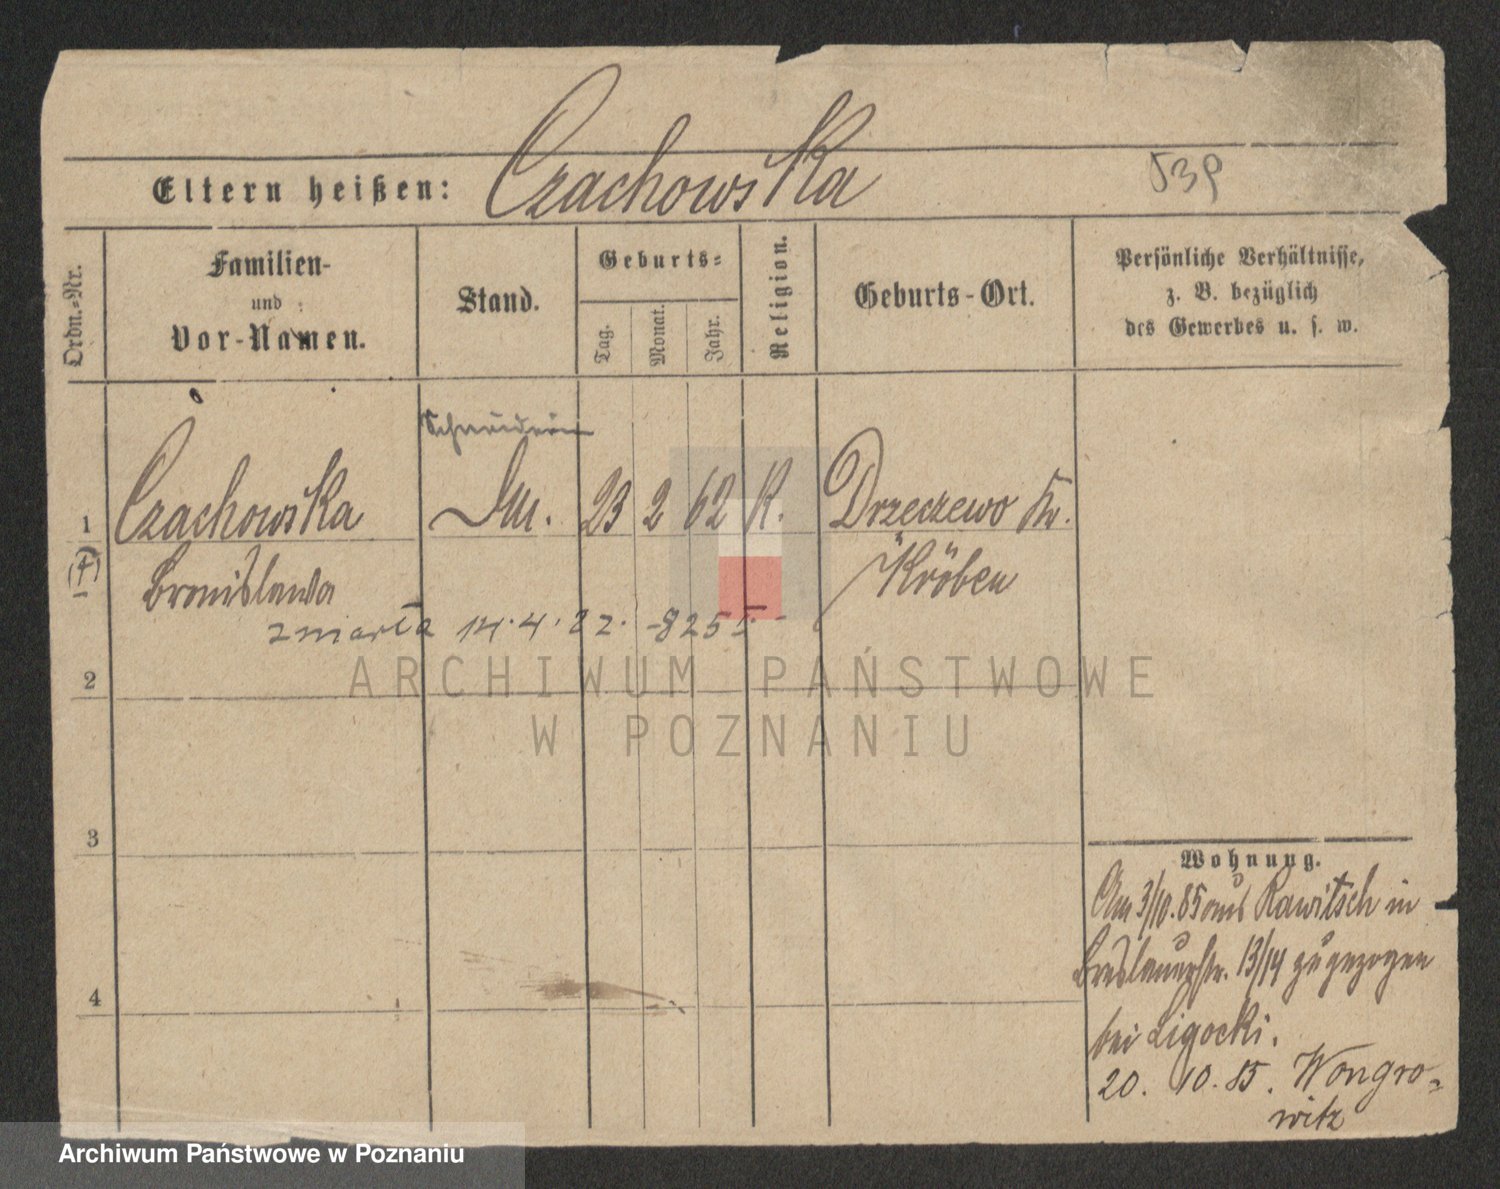 Eltern heißen: Czachowska
Ordn.-Nr.
Familien-
und
Vor-Namen.
Stand.
Geburts-
Tag.
Monat.
Jahr.
Religion.
Geburts-Ort.
Persönliche Verhältnisse,
z. B. bezüglich
des Gewerbes u. s. w.
Schneiderin
1 Czachowska 23 2 62 K. Drzeczewo Kr.
Bronislawa Kröben
zmarła 14.4.22. -8255-
2
3
4
Wohnung.
Am 3/10.85 aus Rawitsch in
Breslauerstr. 13/14 zugezogen
bei Ligocki.
20. 10. 85. Wongro-
witz
ARCHIWUM PAŃSTWOWE
W POZNANIU
Archiwum Państwowe w Poznaniu